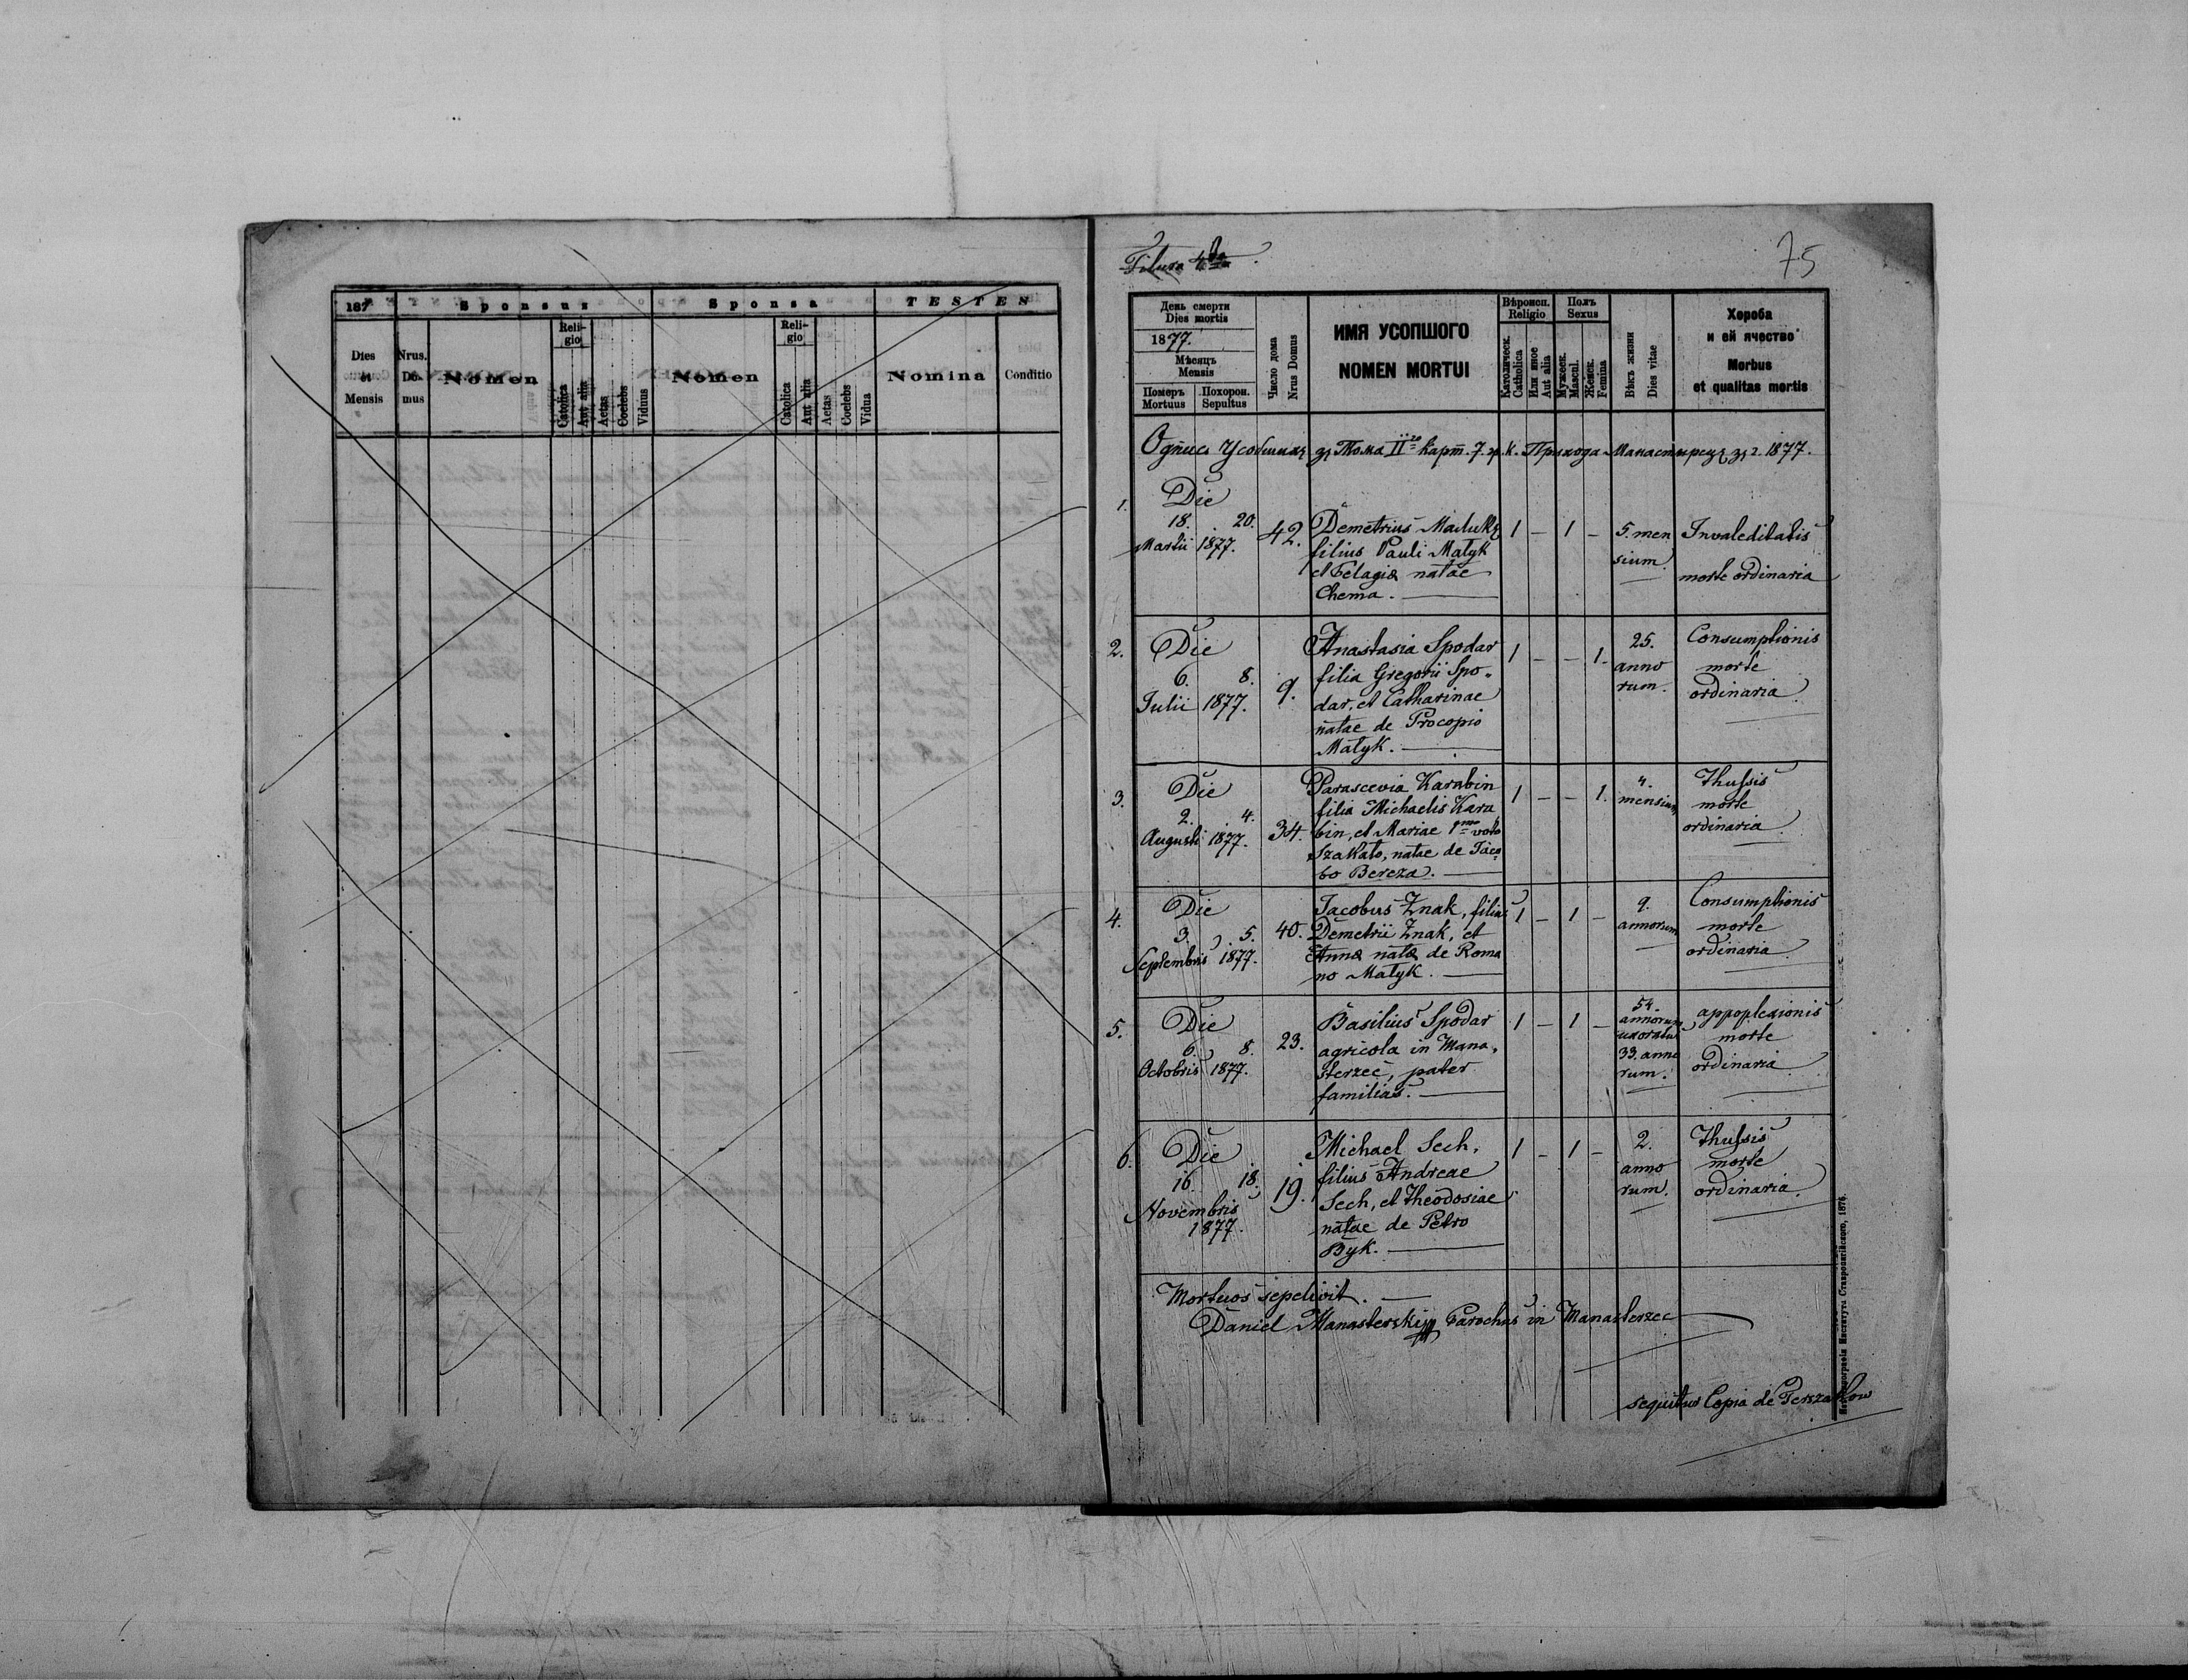 187
Sponsus
Sponsa
TESTES
Dies et Mensis
Nrus. Do- mus
Nomen
Reli- gio
Catolica
Aut alia
Aetas
Coelebs
Viduus
Nomen
Reli- gio
Catolica
Aut alia
Aetas
Coelebs
Vidua
Nomina
Conditio
75
День смерти
Dies mortis
1877.
Мѣсяцъ
Mensis
Померъ Похорон.
Mortuus Sepultus
Число дома
Nrus Domus
ИМЯ УСОПШОГО
NOMEN MORTUI
Вѣроисп.
Religio
Католическ.
Catholica
Или иное
Aut alia
Полъ
Sexus
Мужеск.
Mascul.
Женск.
Femina
Вѣкъ жизни
Dies vitae
Хороба
и ей ячество
Morbus
et qualitas mortis
1. Die
18. 20.
Martii 1877.
42.
Demetrius
filius Pauli Małyk
et Pelagiæ natae
Chema.
1 – 1 –
5. men
sium.
Invaleditatis
morte ordinaria
2. Die
6. 8.
Julii 1877.
9.
Anastasia Spodar
filia Gregorii Spo„
dar, et Catharinae
natae de Procopio
Małyk.
1 – – 1.
25.
anno
rum.
Consumptionis
morte
ordinaria
3. Die
2. 4.
Augusti 1877.
34.
Parascevia Karabin
filia Michaelis Kara
bin, et Mariae 1mo voto
Szakało, natae de Jaco
bo Bereza.
1 – – 1.
4.
mensium
Thussis
morte
ordinaria
4. Die
3. 5.
Septembris 1877.
40.
Jacobus Znak, filius
Demetrii Znak, et
Annæ natæ de Roma
no Małyk.
1 – 1 –
9.
annorum
Consumptionis
morte
ordinaria
5. Die
6. 8.
Octobris 1877.
23.
Basilius Spodar
agricola in Mana„
sterzec, pater
familias.
1 – 1 –
54.
annorum
uxoratus
33. anno
rum.
appoplexionis
morte
ordinaria
6. Die
16. 18.
Novembris
1877.
19.
Michael Sech,
filius Andreae
Sech, et Theodosiae
natae de Petro
Byk.
1 – 1 –
2.
anno
rum.
Thussis
morte
ordinaria.
Mortuos sepelivit.
Daniel Manasterski Parochus in Manasterzec
sequitur Copia de
Института Ставропигійского, 1876.